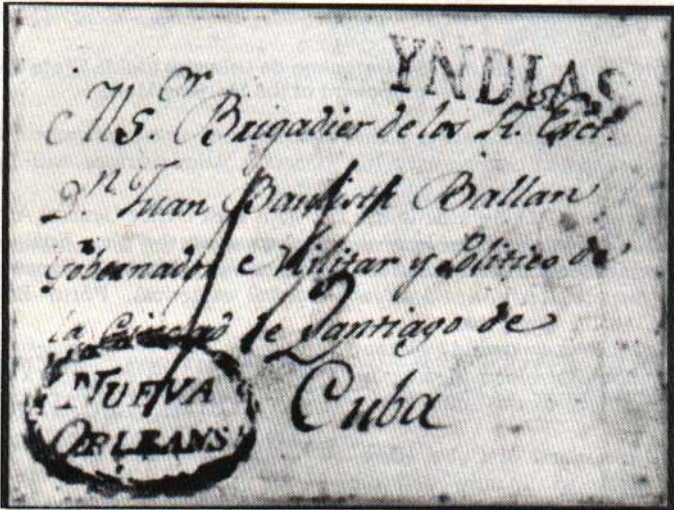 YNDIAS
Al S.or Brigadier de los R.s Exer.
D.n Juan Bautista Ballan
Gobernador Militar y Politico de
la Ciudad de Santiago de
Cuba
NUEVA
ORLEANS